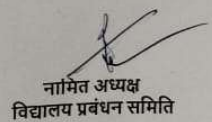 नामित अध्यक्ष
विद्यालय प्रबंधन समिति